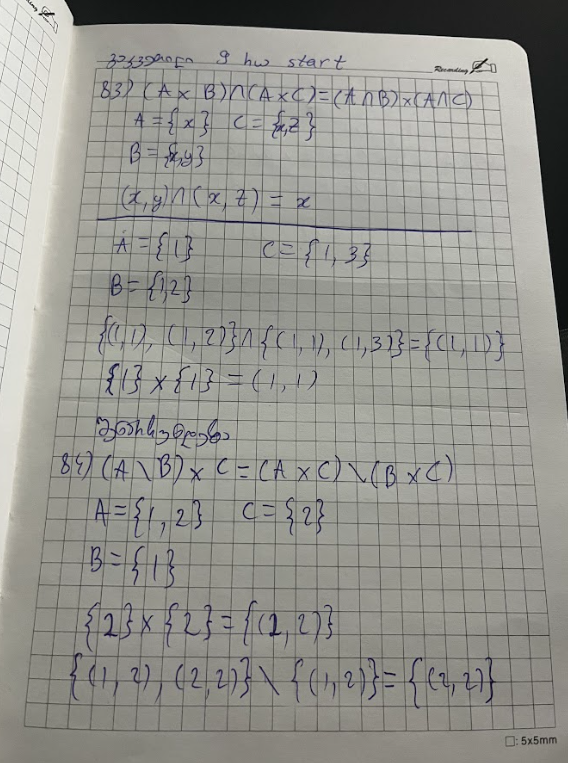 9 hw start
Recording
83) (A × B) ∩ (A × C) = (A ∩ B) × (A ∩ C)
A = {x} C = {x,z}
B = {x,y}
(x, y) ∩ (x, z) = x
A = {1} C = {1, 3}
B = {1,2}
{(1,1), (1, 2)} ∩ {(1,1), (1,3)} = {(1,1)}
{1} × {1} = (1, 1)
84) (A \ B) × C = (A × C) \ (B × C)
A = {1, 2} C = {2}
B = {1}
{2} × {2} = {(2, 2)}
{(1, 2), (2, 2)} \ {(1, 2)} = {(2, 2)}
□: 5x5mm